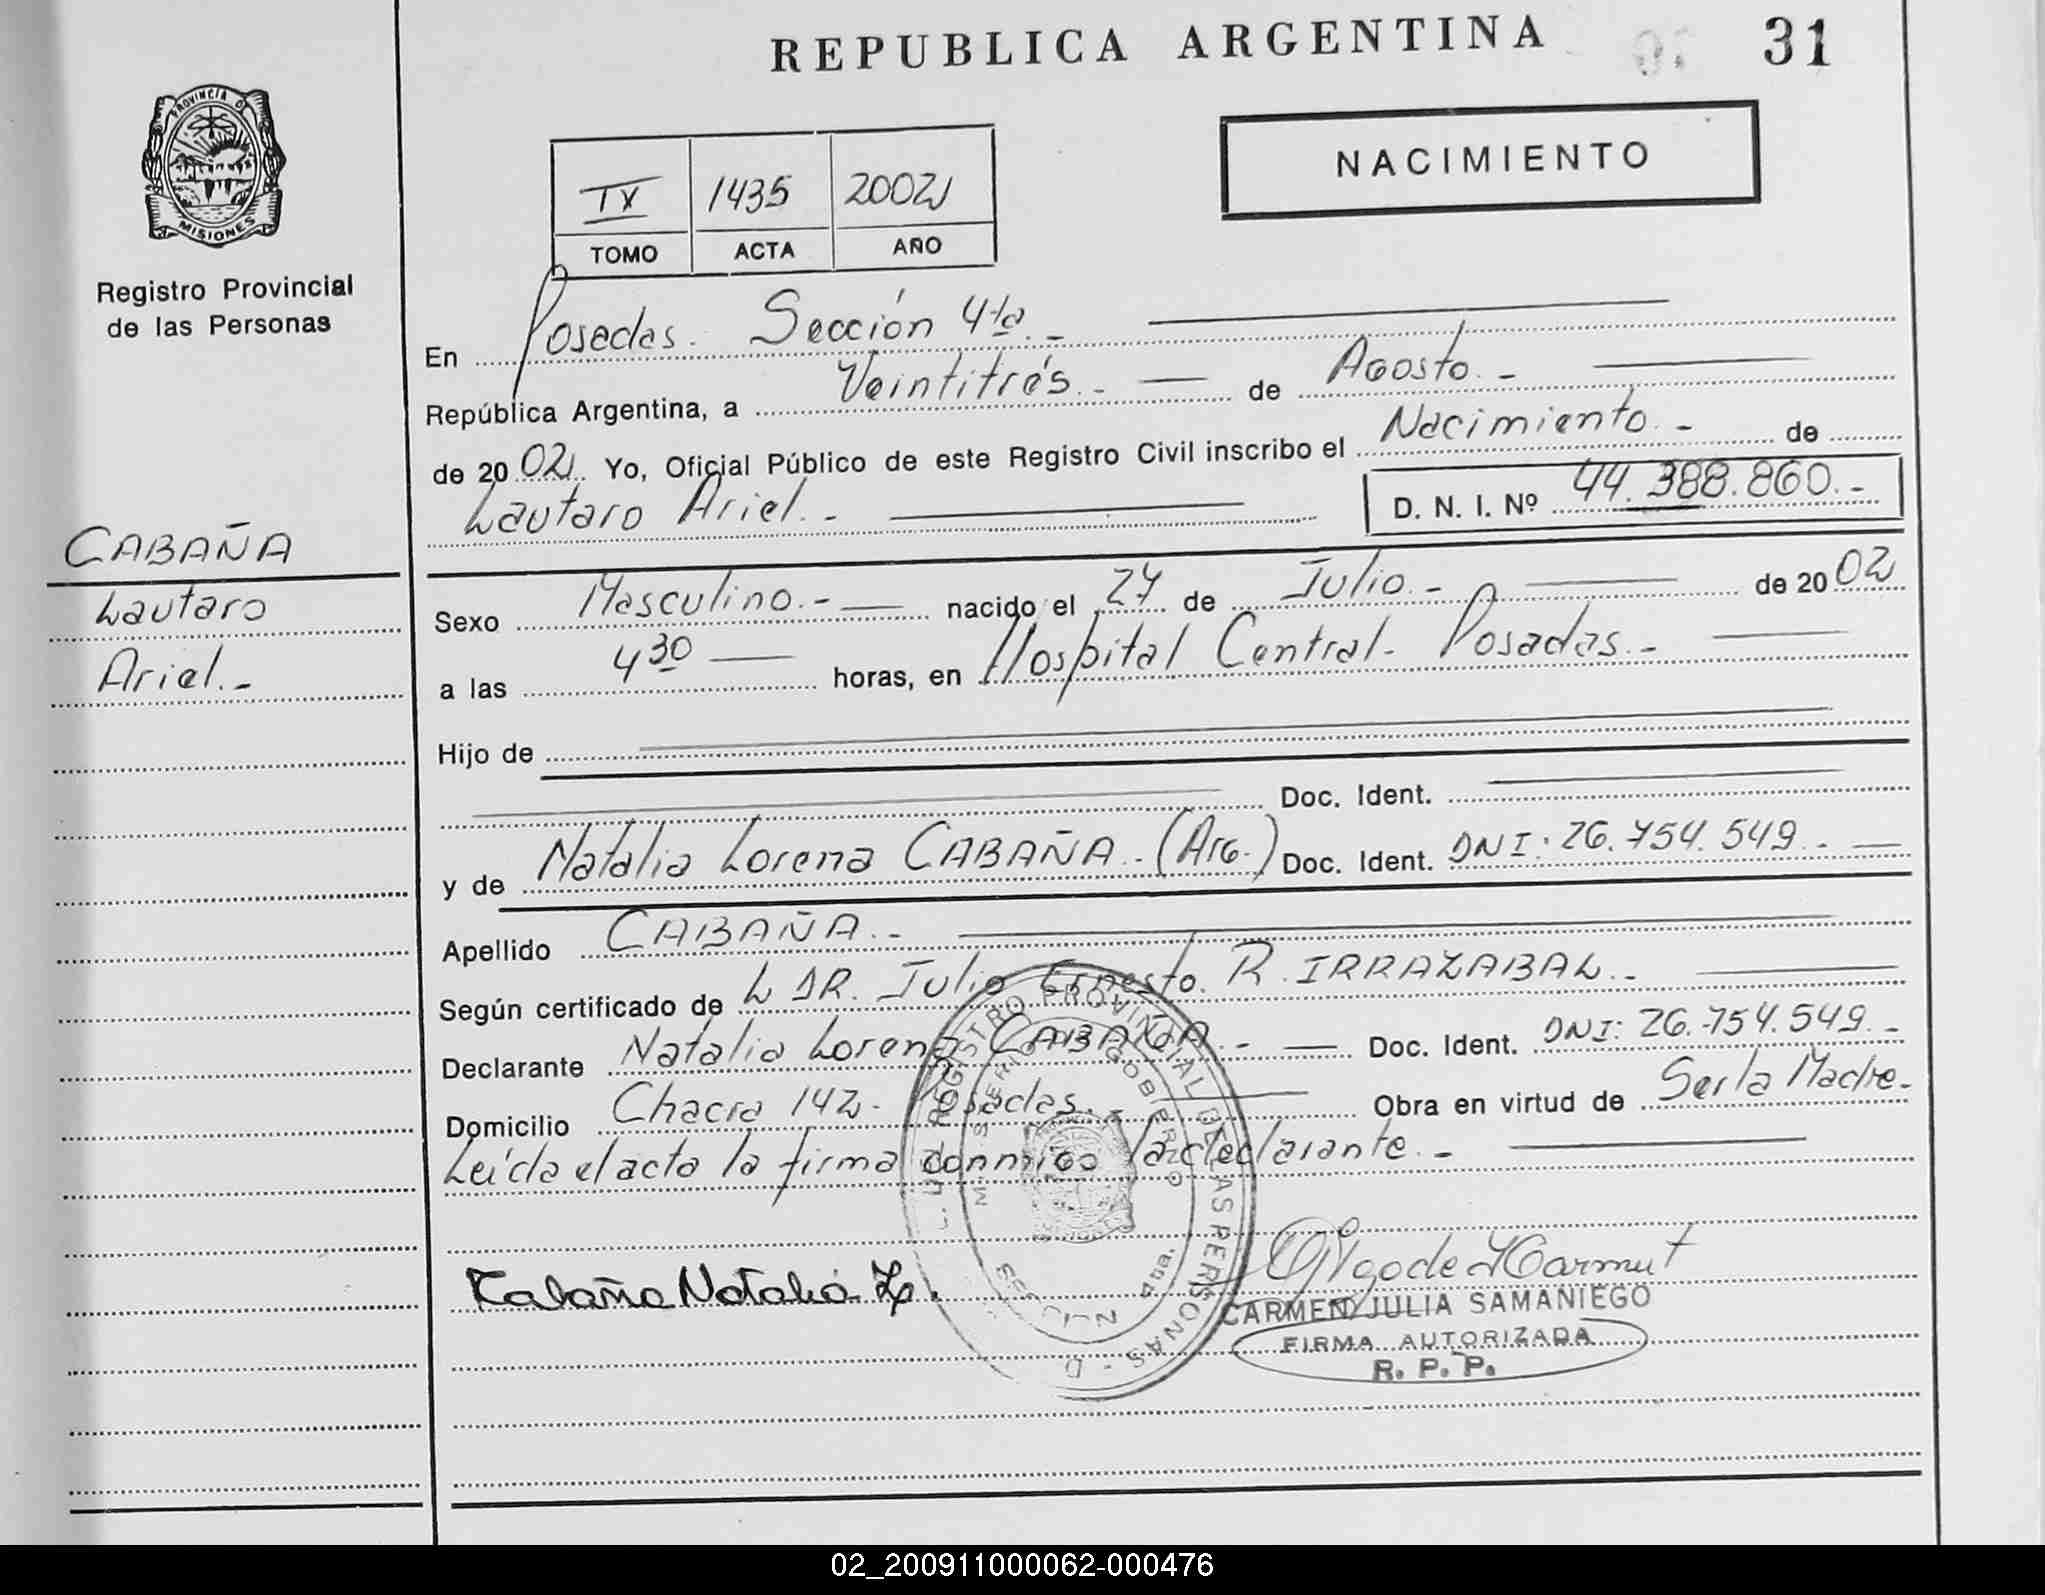 REPUBLICA ARGENTINA
31
PROVINCIA DE
MISIONES
Registro Provincial
de las Personas
NACIMIENTO
IX 1435 2002
TOMO ACTA AÑO
En Posadas. Sección 4ta.-
República Argentina, a Veintitrés.- de Agosto.-
de 2002. Yo, Oficial Público de este Registro Civil inscribo el Nacimiento.- de
Lautaro Ariel.-
D. N. I. Nº 44.388.860.-
CABAÑA
Lautaro
Ariel.-
Sexo Masculino.- nacido el 27 de Julio.- de 2002
a las 4 30 horas, en Hospital Central- Posadas.-
Hijo de
Doc. Ident.
y de Natalia Lorena CABAÑA.-(Arg.) Doc. Ident. DNI: 26.754.549.-
Apellido CABAÑA.-
Según certificado de L DR. Julio Ernesto. R. IRRAZABAL.-
Declarante Natalia Lorena CABAÑA.- Doc. Ident. DNI: 26.754.549.-
Domicilio Chacra 142- Posadas.- Obra en virtud de Ser la Madre.-
Leída el acta la firma conmigo la declarante.-
REGISTRO PROVINCIAL DE LAS PERSONAS
MINISTERIO DE GOBIERNO
SECCION 4ta.
Cabaña Natalia L.
CARMEN JULIA SAMANIEGO
FIRMA AUTORIZADA
R. P. P.
02_200911000062-000476